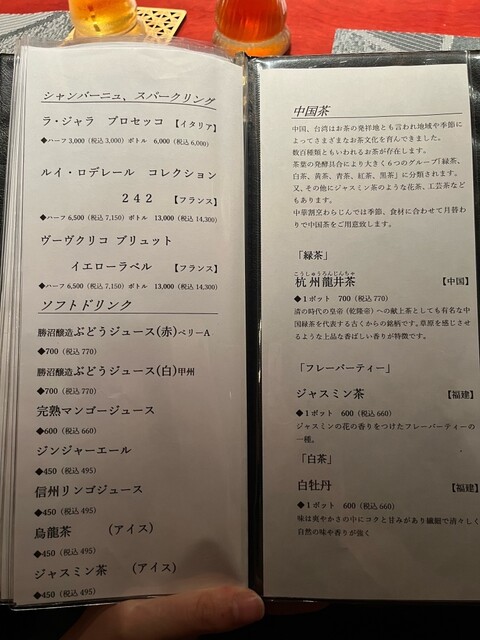 シャンパーニュ、スパークリング
ラ・ジャラ プロセッコ 【イタリア】
◆ハーフ 3,000（税込3,000）ボトル 6,000（税込6,000）
ルイ・ロデレール コレクション
242 【フランス】
◆ハーフ 6,500（税込7,150）ボトル 13,000（税込14,300）
ヴーヴクリコ ブリュット
イエローラベル 【フランス】
◆ハーフ 6,500（税込7,150）ボトル 13,000（税込14,300）
ソフトドリンク
勝沼醸造ぶどうジュース(赤)ベリーA
◆700（税込770）
勝沼醸造ぶどうジュース(白)甲州
◆700（税込770）
完熟マンゴージュース
◆600（税込660）
ジンジャーエール
◆450（税込495）
信州リンゴジュース
◆450（税込495）
烏龍茶 （アイス）
◆450（税込495）
ジャスミン茶 （アイス）
◆450（税込495）
中国茶
中国、台湾はお茶の発祥地とも言われ地域や季節に
よってさまざまなお茶文化を育んできました。
数百種類ともいわれるお茶が存在します。
茶葉の発酵具合により大きく6つのグループ「緑茶、
白茶、黄茶、青茶、紅茶、黒茶」に分類されます。
又、その他にジャスミン茶のような花茶、工芸茶など
もあります。
中華割烹わらじんでは季節、食材に合わせて月替わ
りで中国茶をご用意致します。
「緑茶」
こうしゅうろんじんちゃ
杭州龍井茶 【中国】
◆1ポット 700（税込770）
清の時代の皇帝（乾隆帝）への献上茶としても有名な中
国緑茶を代表する古くからの銘柄です。草原を感じさせ
るような上品な香ばしい香りが特徴です。
「フレーバーティー」
ジャスミン茶 【福建】
◆1ポット 600（税込660）
ジャスミンの花の香りをつけたフレーバーティーの
一種。
「白茶」
白牡丹 【福建】
◆1ポット 600（税込660）
味は爽やかさの中にコクと甘みがあり繊細で清々しく
自然の味や香りが強く